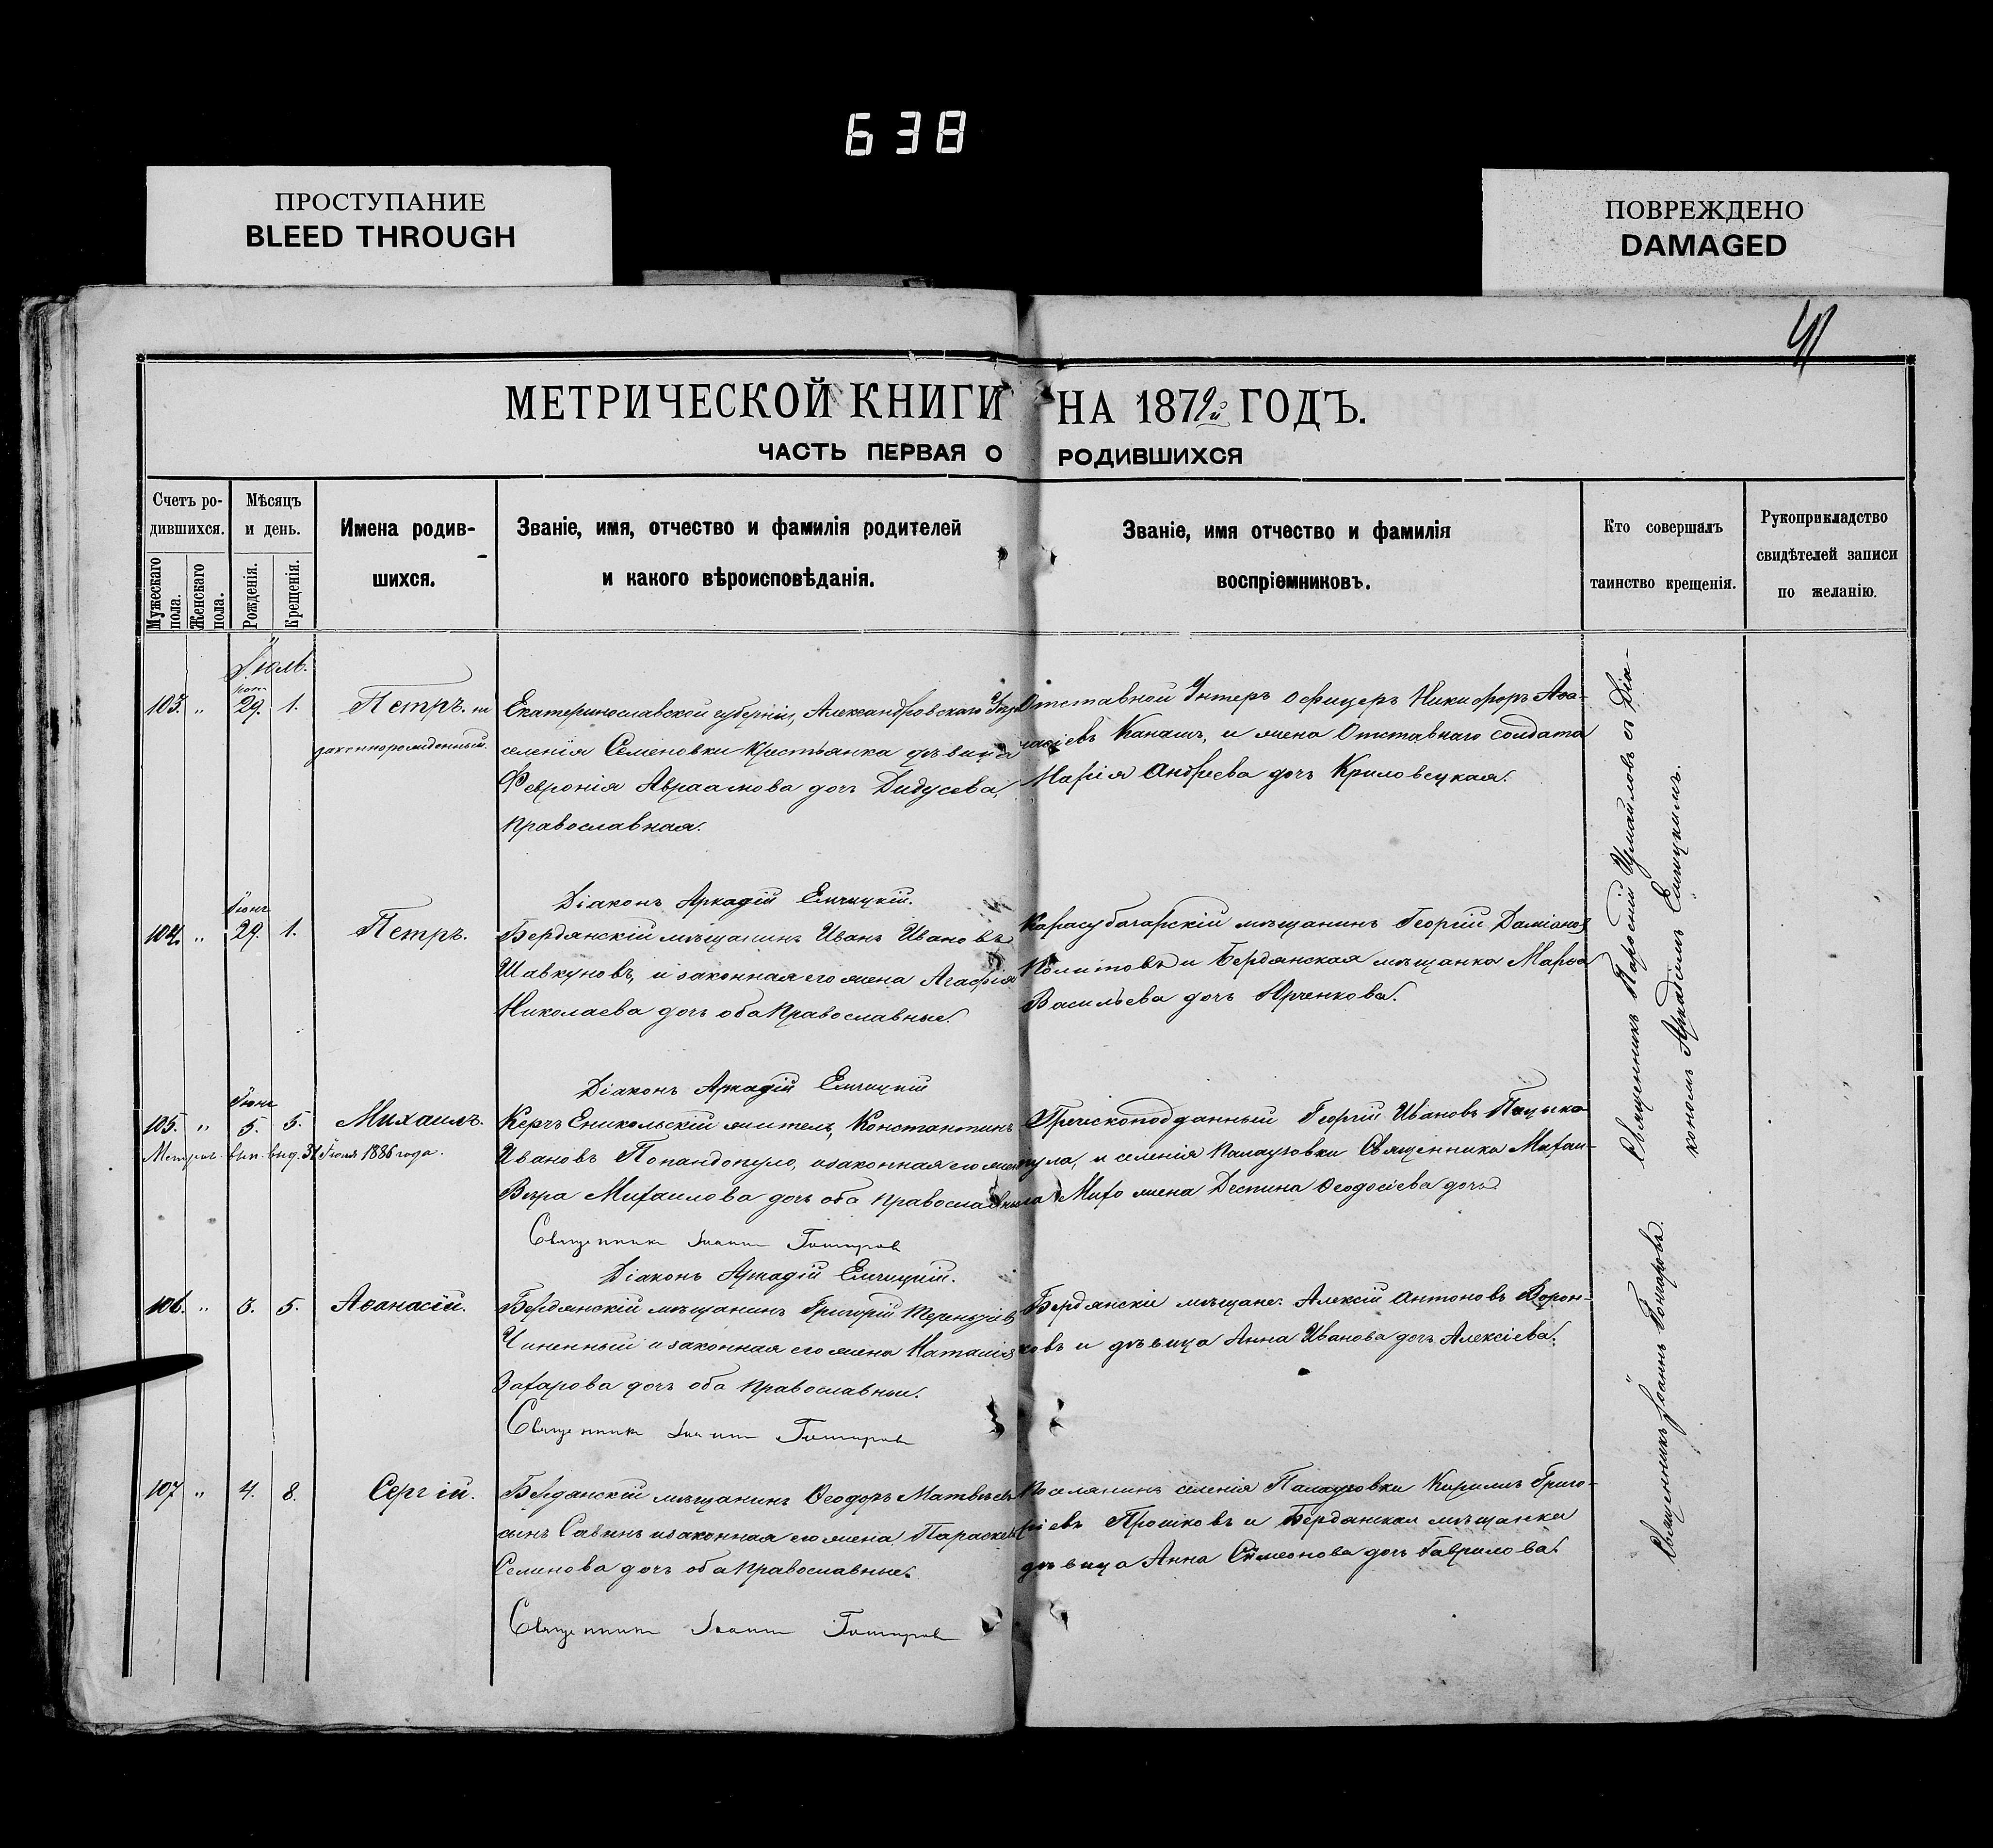 638
ПРОСТУПАНИЕ
BLEED THROUGH
ПОВРЕЖДЕНО
DAMAGED
МЕТРИЧЕСКОЙ КНИГИ НА 1879й ГОДЪ.
ЧАСТЬ ПЕРВАЯ О РОДИВШИХСЯ
Счетъ ро-
дившихся.
Мужескаго пола.
Женскаго пола.
Мѣсяцъ
и день.
Рожденія.
Крещенія.
Имена родив-
шихся.
Званіе, имя, отчество и фамилія родителей
и какого вѣроисповѣданія.
Званіе, имя отчество и фамилія
воспріемниковъ.
Кто совершалъ
таинство крещенія.
Рукоприкладство
свидѣтелей записи
по желанію.
Іюль.
103. " 29. 1.
Петръ. не
законнорожденный.
Екатеринославской губерніи, Александровскаго Уѣзда
селенія Семеновки крестьянка дѣвица
Феврonія Авраамова дочь Дидусева,
православная.
Отставной Унтеръ офицеръ Никифоръ Аѳа-
насіевъ Канашъ, и жена Отставнаго солдата
Марія Андреева дочь Криловецкая.
Діаконъ Аркадій Емчицкій.
104. " Іюнь 29. 1.
Петръ.
Бердянскій мѣщанинъ Иванъ Ивановъ
Шавкуновъ, и законная его жена Агафія
Николаева дочь оба православные.
Карасубазарскій мѣщанинъ Георгій Даміановъ
и Бердянская мѣщанка Марѳа
Васильева дочь Юрченкова.
Діаконъ Аркадій Емчицкій
105. " 5. 5.
Михаилъ.
Метрич. вып. выд. 31 Іюля 1886 года.
Керчъ Еникольскій житель, Константинъ
Ивановъ Попандопуло, и законная его жена
Вѣра Михаилова дочь оба православные
Греческоподданный Георгій Ивановъ
и селенія Священника Михаи-
ла жена Деспина Ѳеодосіева дочь
Священникъ Іоаннъ Гончаровъ
Діаконъ Аркадій Емчицкій.
106. " 3. 5.
Аѳанасій.
Бердянскій мѣщанинъ Григорій Терентіевъ
Чиненный и законная его жена Наталія
Захарова дочь оба православные.
Бердянскіе мѣщане: Алексій Антоновъ Ворон-
ковъ и дѣвица Анна Иванова дочь Алексіева.
Священникъ Іоаннъ Гончаровъ
107 " 4. 8.
Сергій.
Бердянскій мѣщанинъ Ѳеодоръ Матвѣевъ
сынъ Савинъ и законная его жена Параскева
Семенова дочь оба православные.
Поселянинъ селенія Кирилъ Григо-
ріевъ Прошковъ и Бердянская мѣщанка
дѣвица Анна Симеонова дочь Гаврилова.
Священникъ Іоаннъ Гончаровъ
Священникъ съ Діа-
кономъ Аркадіемъ Емчицкимъ.
Священникъ Іоаннъ Гончаровъ.